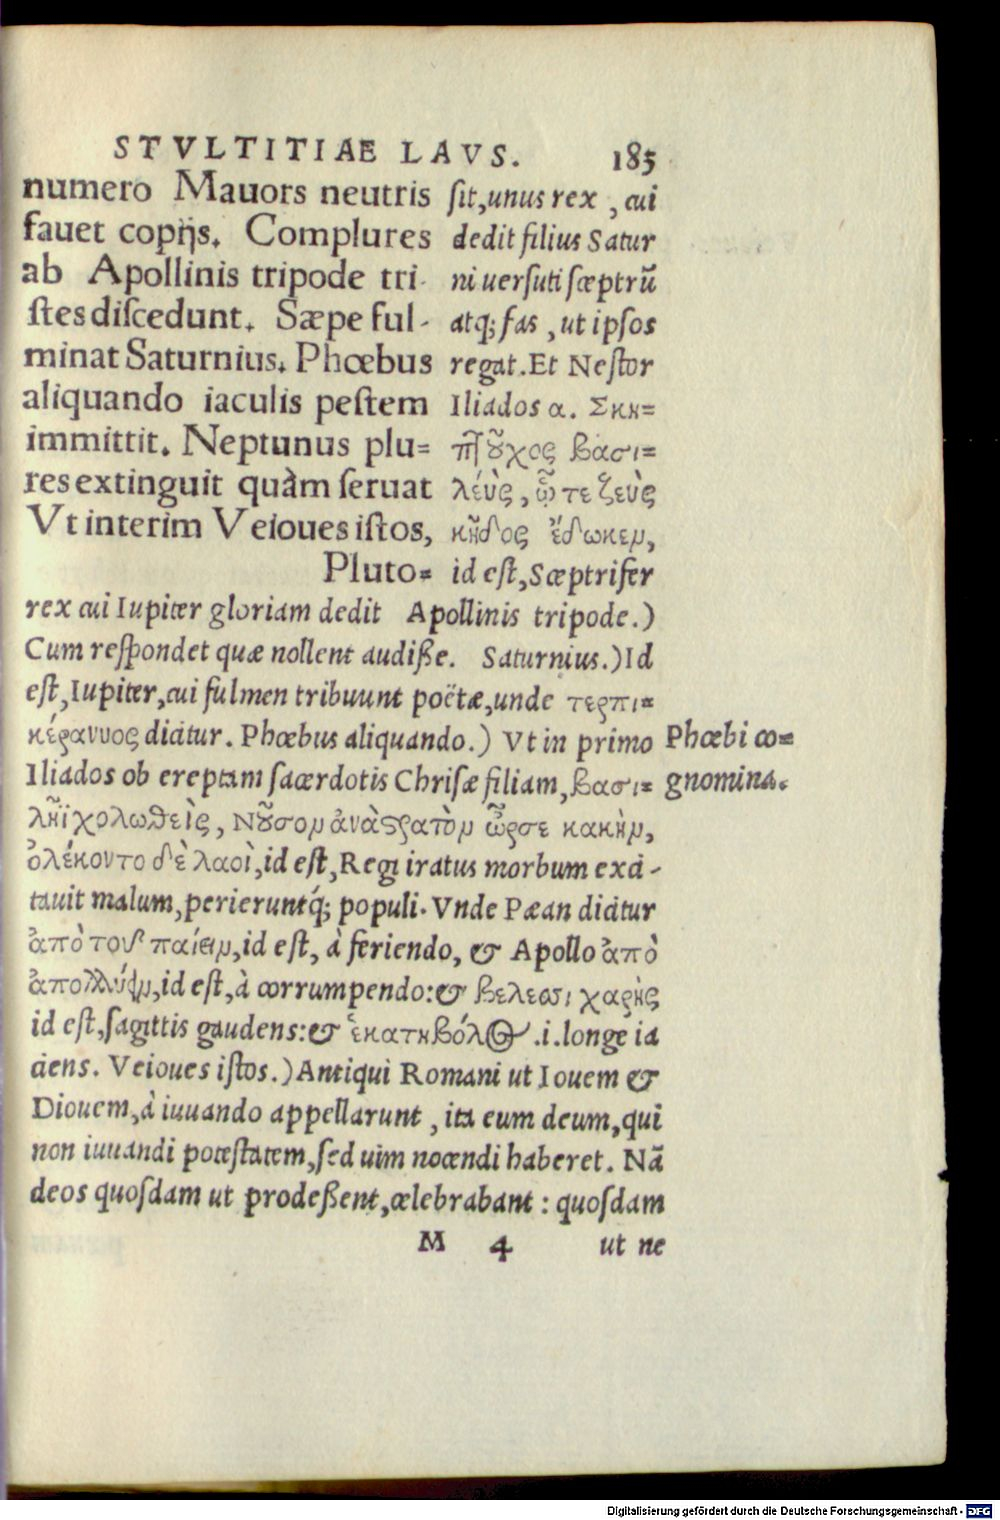 STVLTITIAE LAVS. 185
numero Mauors neutris
fauet copijs. Complures
ab Apollinis tripode tri-
stes discedunt. Sæpe ful-
minat Saturnius. Phœbus
aliquando iaculis pestem
immittit. Neptunus plu=
res extinguit quàm seruat
Vt interim Veioues istos,
Pluto=
sit, unus rex, cui
dedit filius Satur
ni uersuti sceptrū
atq; fas, ut ipsos
regat. Et Nestor
Iliados α. Σκη=
πτοῦχος βασι=
λεὺς, ᾧ τε ζεὺς
κῆδος ἔδωκεν,
id est, Sceptrifer
rex cui Iupiter gloriam dedit Apollinis tripode.)
Cum respondet quæ nollent audiße. Saturnius.) Id
est, Iupiter, cui fulmen tribuunt poëtæ, unde τερπι=
κέραυνος dicitur. Phœbus aliquando.) Vt in primo
Phœbi co=
gnomina.
Iliados ob ereptam sacerdotis Chrisæ filiam, βασι=
λῆϊ χολωθεὶς, Νοῦσον ἀνὰ στρατὸν ὦρσε κακὴν,
ὀλέκοντο δὲ λαοὶ, id est, Regi iratus morbum exci-
tauit malum, perieruntq́; populi. Vnde Pæan dicitur
ἀπὸ τοῦ παίειν, id est, à feriendo, & Apollo ἀπὸ
ἀπολλύειν, id est, à corrumpendo: & βέλεσσι χαρὴς
id est, sagittis gaudens: & ἑκατηβόλος .i. longe ia
ciens. Veioues istos.) Antiqui Romani ut Iouem &
Diouem, à iuuando appellarunt, ita eum deum, qui
non iuuandi potestatem, sed uim nocendi haberet. Nā
deos quosdam ut prodeßent, celebrabant: quosdam
M 4 ut ne
Digitalisierung gefördert durch die Deutsche Forschungsgemeinschaft - DFG